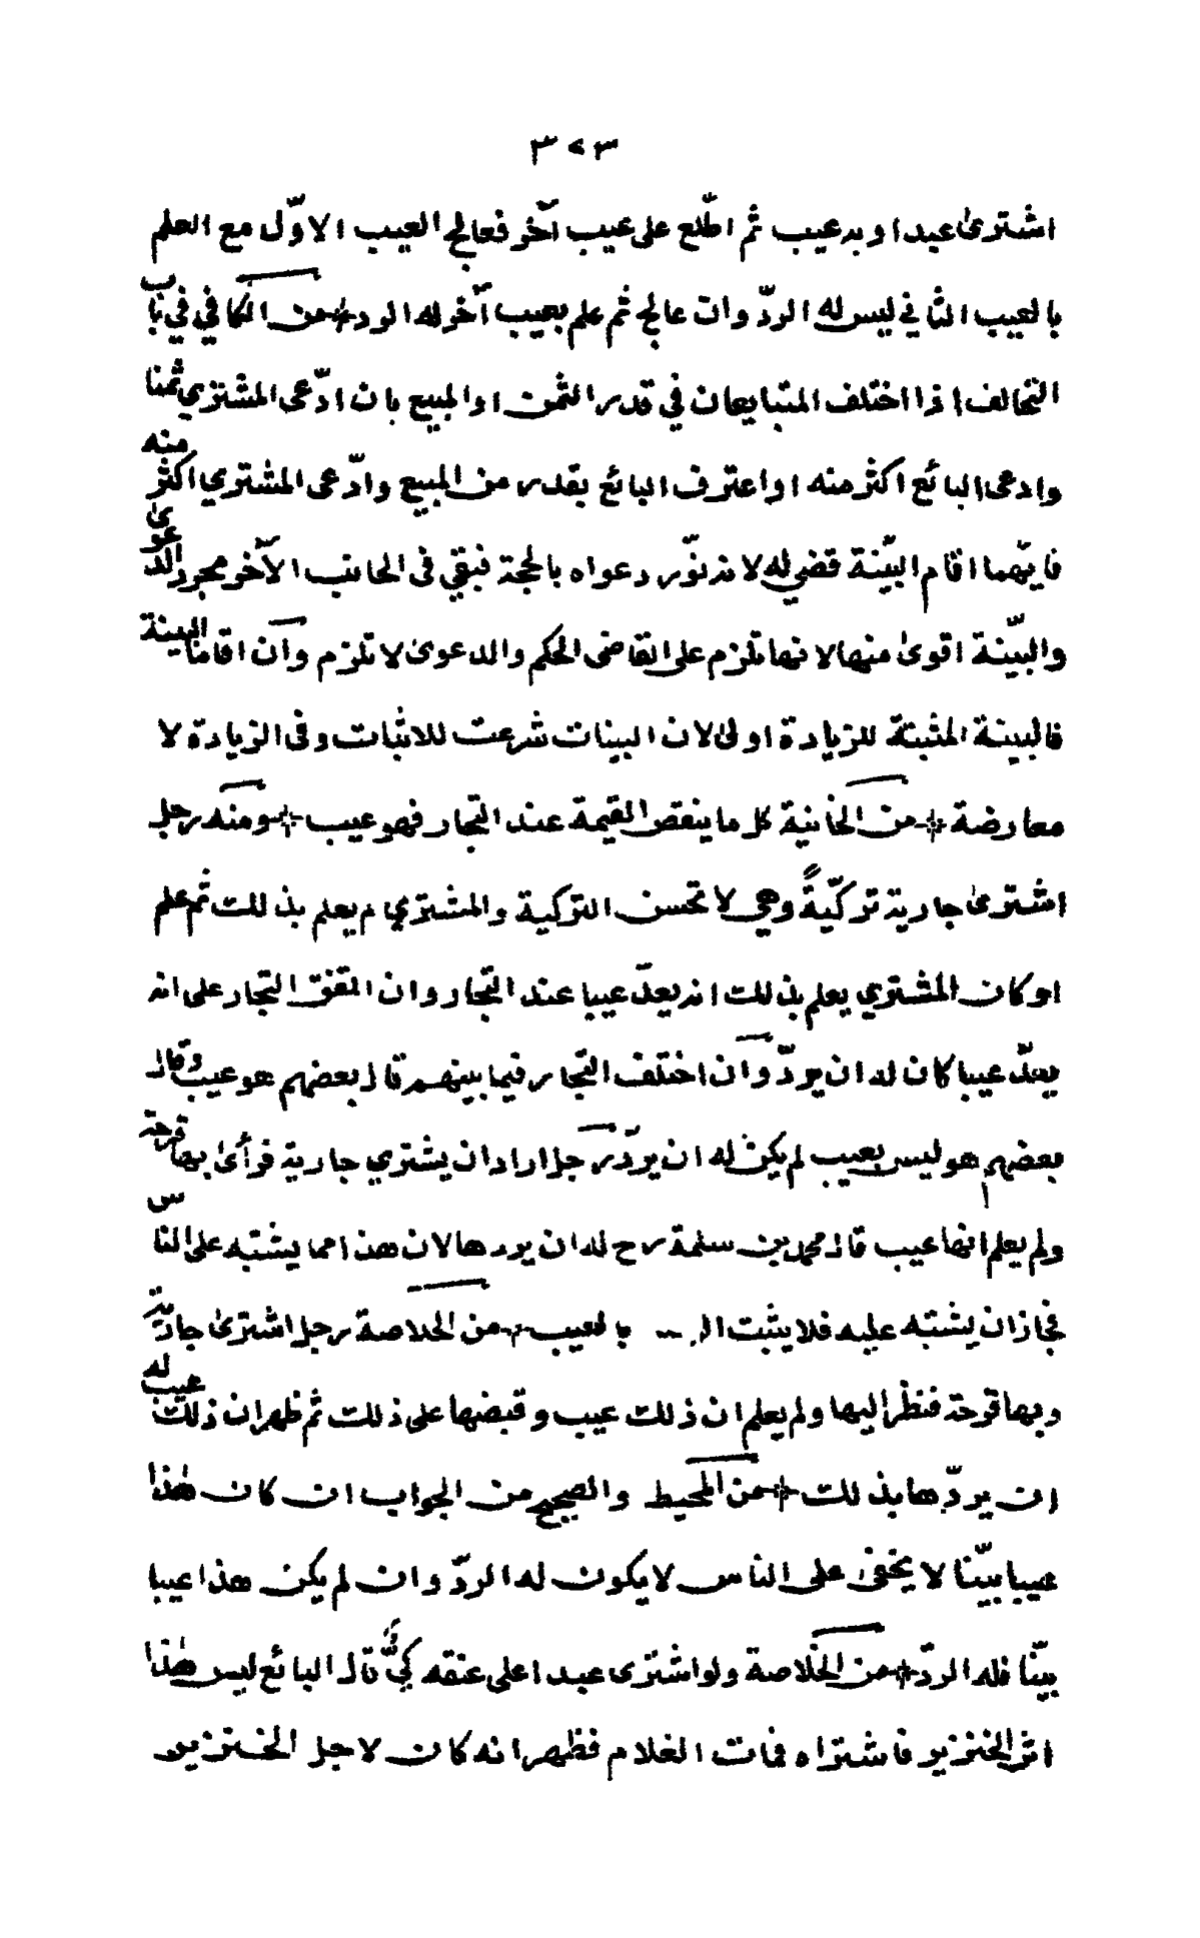 ٣٢٣
اشترى عبدا وبه عيب ثم اطّلع على عيب آخر فعالج العيب الاوّل مع العلم
بالعيب الثاني ليس له الردّ وان عالج ثم علم بعيب آخر له الرد * من الكافي في باب
التحالف اذا اختلف المتبايعان في قدر الثمن او المبيع بان ادّعى المشتري ثمنا
وادعى البائع اكثر منه او اعترف البائع بقدر من المبيع وادّعى المشتري اكثر منه
فايّهما اقام البيّنة قضي له لانه نوّر دعواه بالحجة فبقي فى الجانب الآخر مجرد الدعوى
والبيّنة اقوى منها لانها تلزم على القاضى الحكم والدعوى لا تلزم وان اقاما البينة
فالبينة المثبتة للزيادة اولى لان البينات شرعت للاثبات وفى الزيادة لا
معارضة * من الخانية كل ما ينقص القيمة عند التجار فهو عيب * ومنه رجل
اشترى جارية تركيّةً وهي لا تحسن التركية والمشتري لم يعلم بذلك ثم علم
او كان المشتري يعلم بذلك انه يعدّ عيبا عند التجار وان اتفق التجار على انه
يعدّ عيبا كان له ان يردّ وان اختلف التجار فيما بينهم قال بعضهم هو عيب وقال
بعضهم هو ليس بعيب لم يكن له ان يردّ رجل اراد ان يشتري جارية فرأى بها قرحة
ولم يعلم انها عيب قال محمد بن سلمة رح له ان يردها لان هذا مما يشتبه على الناس
فجاز ان يشتبه عليه فلا يثبت ... بالعيب * من الخلاصة رجل اشترى جارية
وبها قرحة فنظر اليها ولم يعلم ان ذلك عيب وقبضها على ذلك ثم ظهر ان ذلك عيب له
ان يردّها بذلك * من المحيط والصحيح من الجواب ان كان هذا
عيبا بيّنا لا يخفى على الناس لا يكون له الردّ وان لم يكن هذا عيبا
بيّنا فله الردّ * من الخلاصة ولو اشترى عبدا على عنقه كيٌّ قال البائع ليس هذا
اثر الخنزير فاشتراه فمات الغلام فظهر انه كان لاجل الخنزير